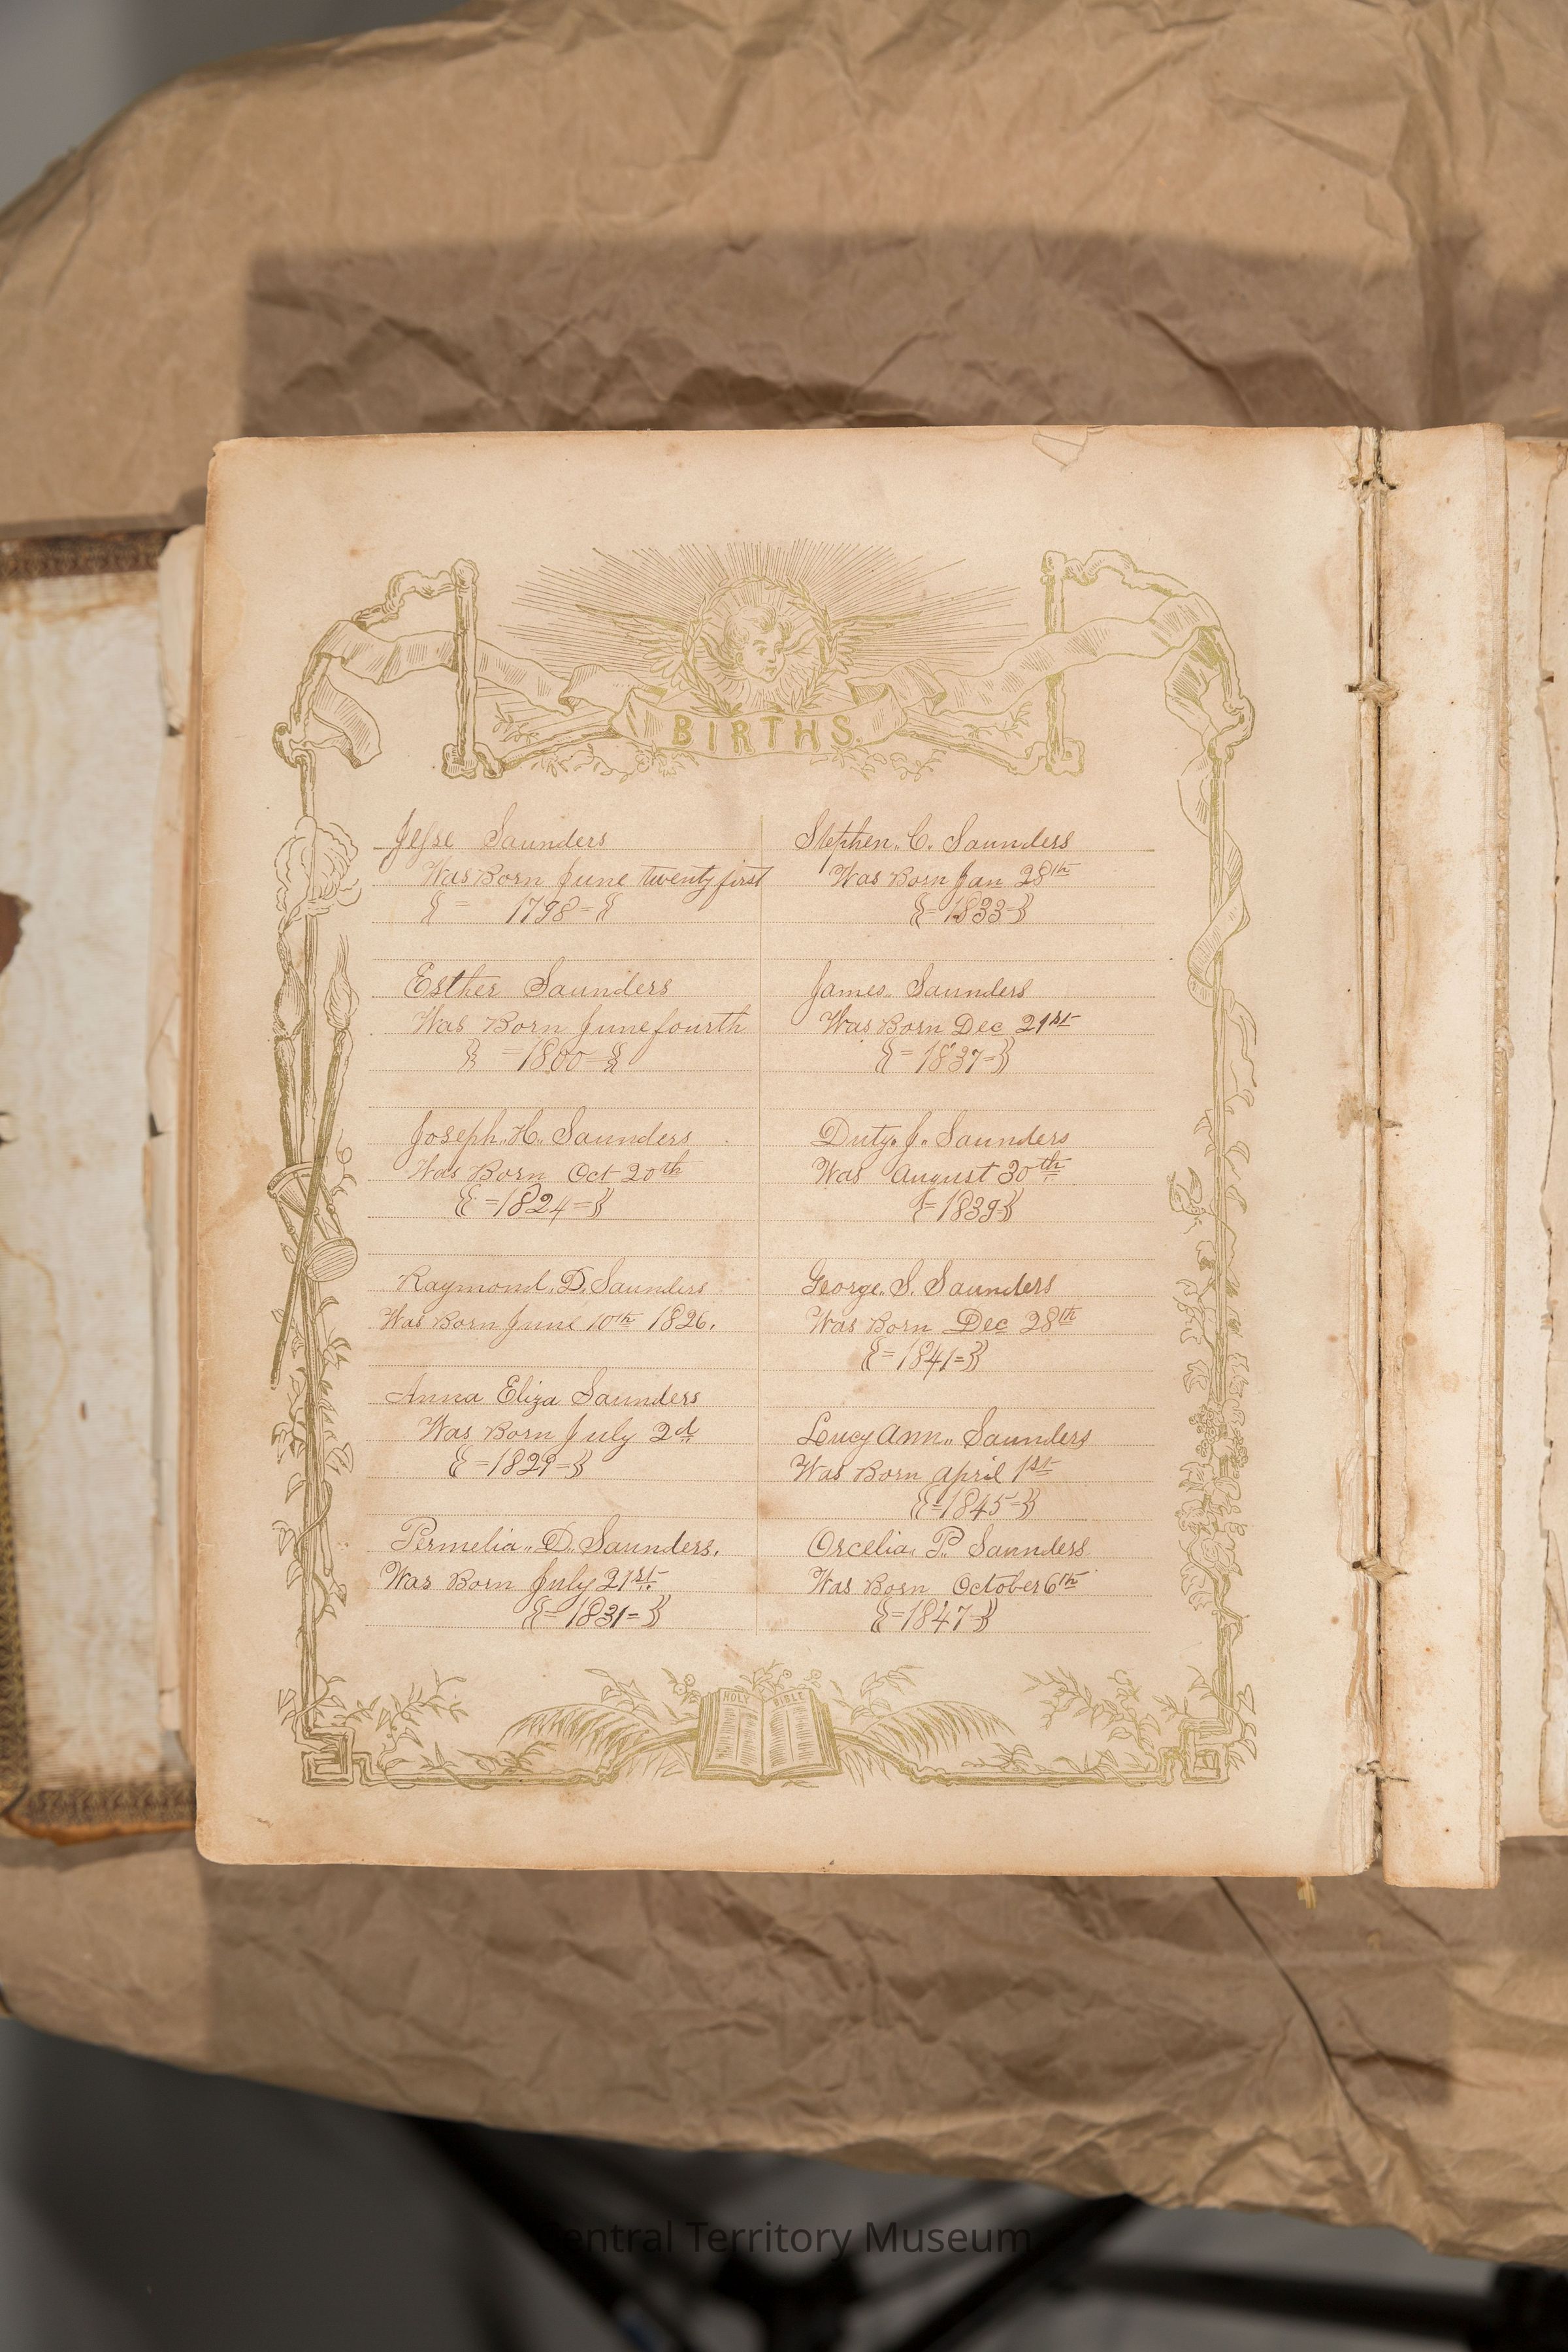 BIRTHS.
Jesse Saunders
Was Born June twenty first
{= 1798 ={
Esther Saunders
Was Born June fourth
} =1800= {
Joseph,, H,, Saunders
Was Born Oct 20th
{=1824=}
Raymond,, D. Saunders
Was Born June 10th 1826.
Anna Eliza Saunders
Was Born July 2d
{=1829=}
Permelia,, D. Saunders.
Was Born July 21st.
{=1831=}
Stephen,, C. Saunders
Was Born Jan 28th
{=1833=}
James,, Saunders
Was Born Dec 21st
{=1837=}
Duty,, J,, Saunders
Was August 30th
{=1839=}
George,, S. Saunders
Was Born Dec 28th
{=1841=}
Lucy Ann,, Saunders
Was Born April 1st
{=1845=}
Orcelia,, P. Saunders
Was Born October 6th
{=1847=}
HOLY BIBLE
Central Territory Museum